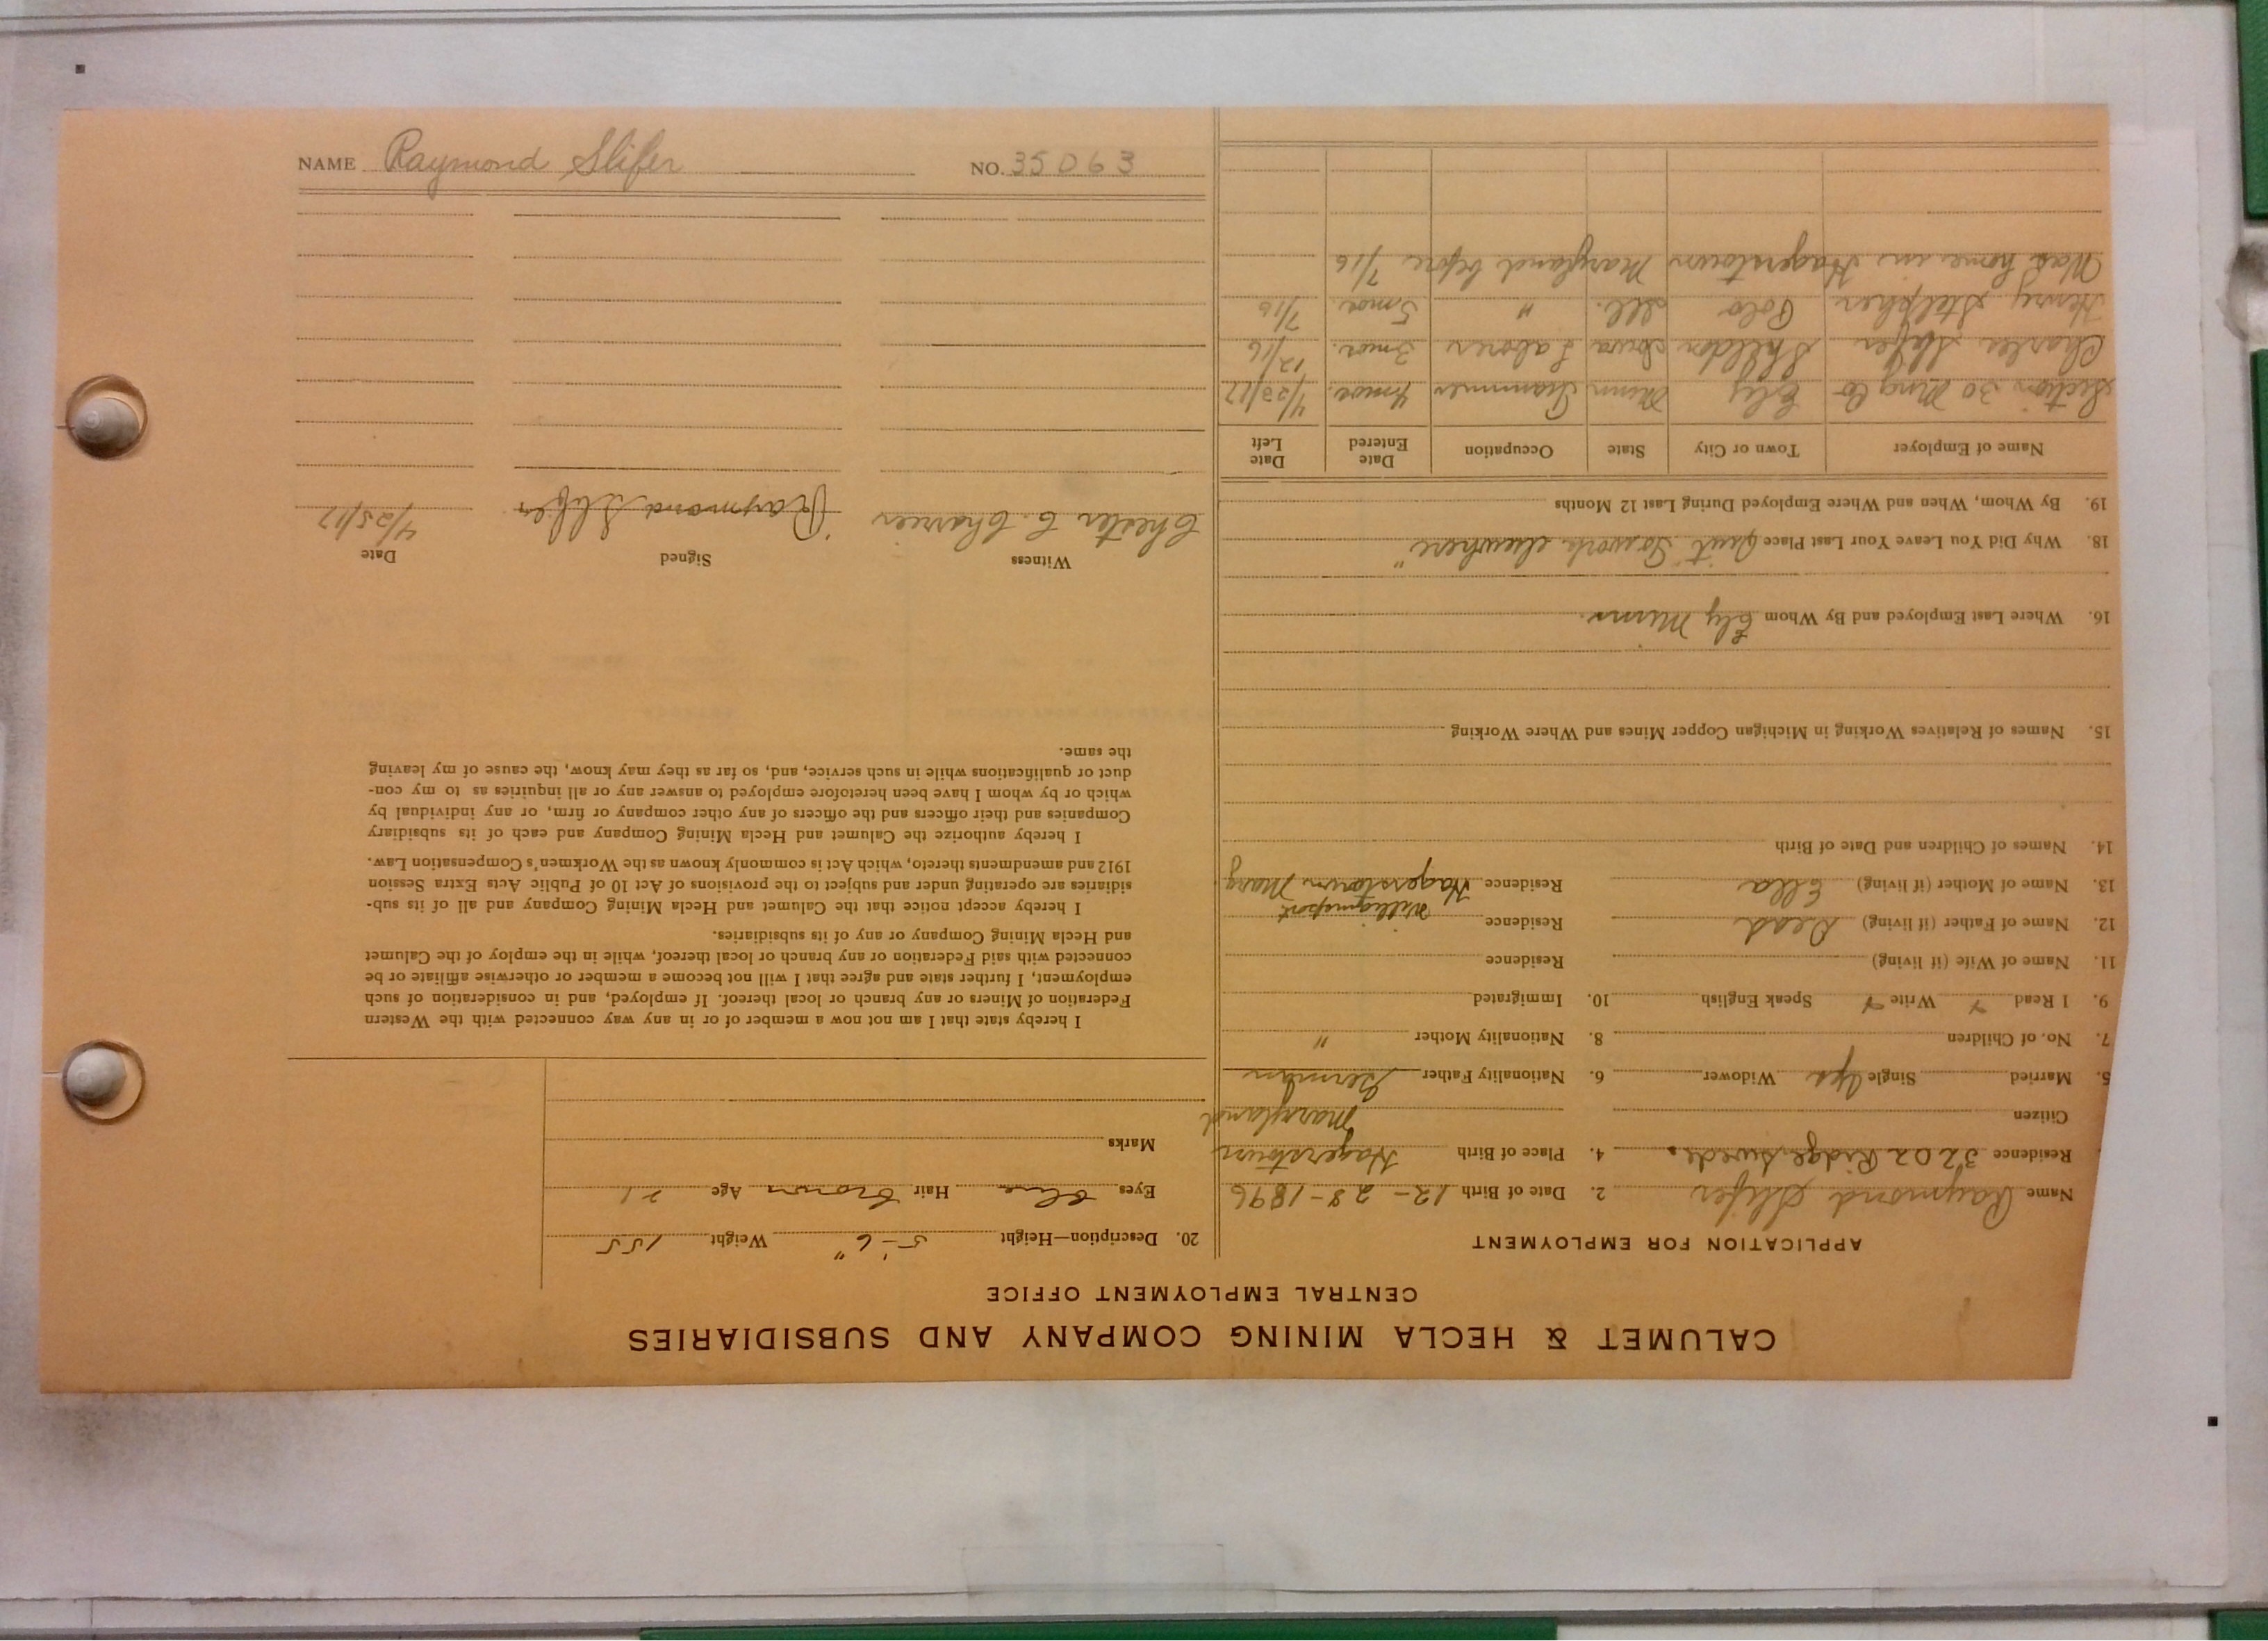 NAME Raymond Slifer NO. 35063
CALUMET & HECLA MINING COMPANY AND SUBSIDIARIES
CENTRAL EMPLOYMENT OFFICE
APPLICATION FOR EMPLOYMENT
Name Raymond Slifer 2. Date of Birth 12-28-1896
Residence 3202 Ridge 4. Place of Birth Hagerstown
Citizen Maryland
5. Married Single Yes Widower 6. Nationality Father German
7. No. of Children 8. Nationality Mother "
9. I Read Write Speak English 10. Immigrated
11. Name of Wife (if living) Residence
12. Name of Father (if living) Dead Residence Williamsport
13. Name of Mother (if living) Ella Residence Hagerstown Mary
14. Names of Children and Date of Birth
15. Names of Relatives Working in Michigan Copper Mines and Where Working
16. Where Last Employed and By Whom Ely Minn.
18. Why Did You Leave Your Last Place Quit "To work elsewhere"
19. By Whom, When and Where Employed During Last 12 Months
Name of Employer Town or City State Occupation Date Entered Date Left
Section 30 Mng Co Ely Minn Trammer 4 mos. 4/23/17
Charles Slifer Sheldon Iowa Laborer 3 mos. 12/16
Henry Polo Ill. " 5 mos. 7/16
Was home in Hagerstown Maryland before 7/16
20. Description—Height 5'-6" Weight 155
Eyes Blue Hair Brown Age 21
Marks
I hereby state that I am not now a member of or in any way connected with the Western
Federation of Miners or any branch or local thereof. If employed, and in consideration of such
employment, I further state and agree that I will not become a member or otherwise affiliate or be
connected with said Federation or any branch or local thereof, while in the employ of the Calumet
and Hecla Mining Company or any of its subsidiaries.
I hereby accept notice that the Calumet and Hecla Mining Company and all of its sub-
sidiaries are operating under and subject to the provisions of Act 10 of Public Acts Extra Session
1912 and amendments thereto, which Act is commonly known as the Workmen's Compensation Law.
I hereby authorize the Calumet and Hecla Mining Company and each of its subsidiary
Companies and their officers and the officers of any other company or firm, or any individual by
which or by whom I have been heretofore employed to answer any or all inquiries as to my con-
duct or qualifications while in such service, and, so far as they may know, the cause of my leaving
the same.
Witness Signed Date
Chester C. Raymond Slifer 4/25/17